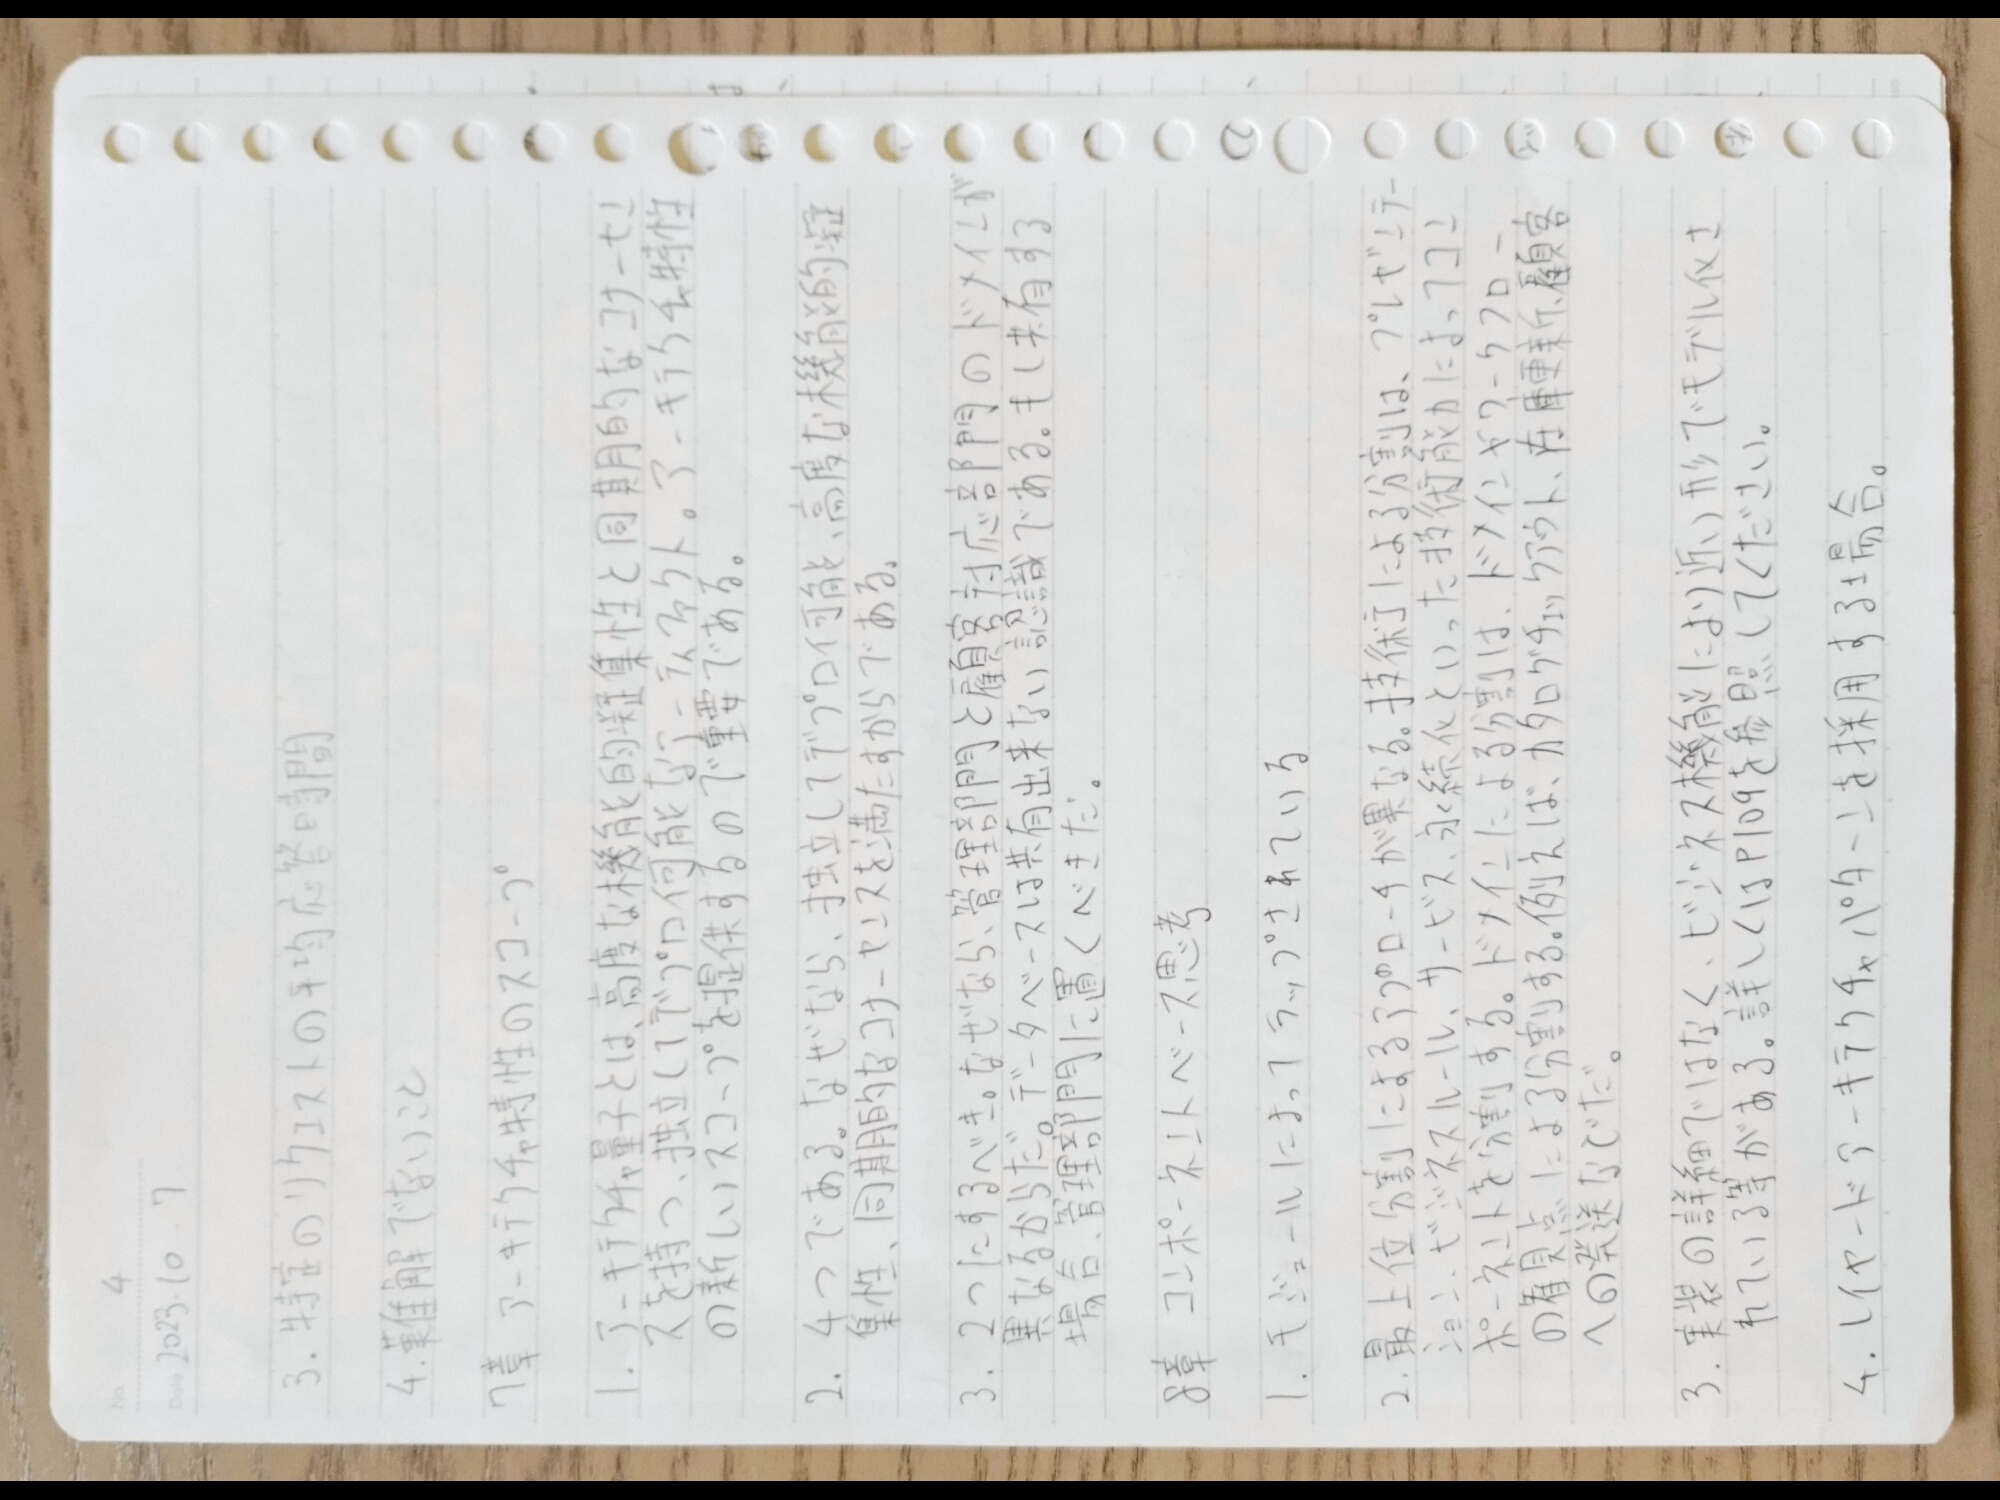 No. 4
Date 2023.10.7
3. 特定のリクエストの平均応答時間
4. 難解でないこと
7章 アーキテクチャ特性のスコープ
1. アーキテクチャ量子とは、高度な機能的凝集性と同期的なコナーセン
スを持つ、独立してデプロイ可能なアーティファクト。アーキテクチャ特性
の新しいスコープを提供するので重要である。
2. 4つである。なぜなら、独立してデプロイ可能、高度な機能的凝
集性、同期的なコナーセンスを満たすからである。
3. 2つにするべき。なぜなら、管理部門と顧客対応部門のドメインが
異なるからだ。データベースは共有出来ない認識である。もし共有する
場合、管理部門に置くべきだ。
8章 コンポーネントベース思考
1. モジュールによってラップされている
2. 最上位分割によるアプローチが異なる。技術による分割は、プレゼンテー
ション、ビジネスルール、サービス、永続化といった技術能力によってコン
ポーネントを分割する。ドメインによる分割は、ドメインやワークフロー
の観点による分割する。例えば、カタログチェックアウト、在庫更新、顧客
への発送などだ。
3. 実装の詳細ではなく、ビジネス機能により近い形でモデル化さ
れている等がある。詳しくはP109を参照してください。
4. レイヤードアーキテクチャパターンを採用する場合。